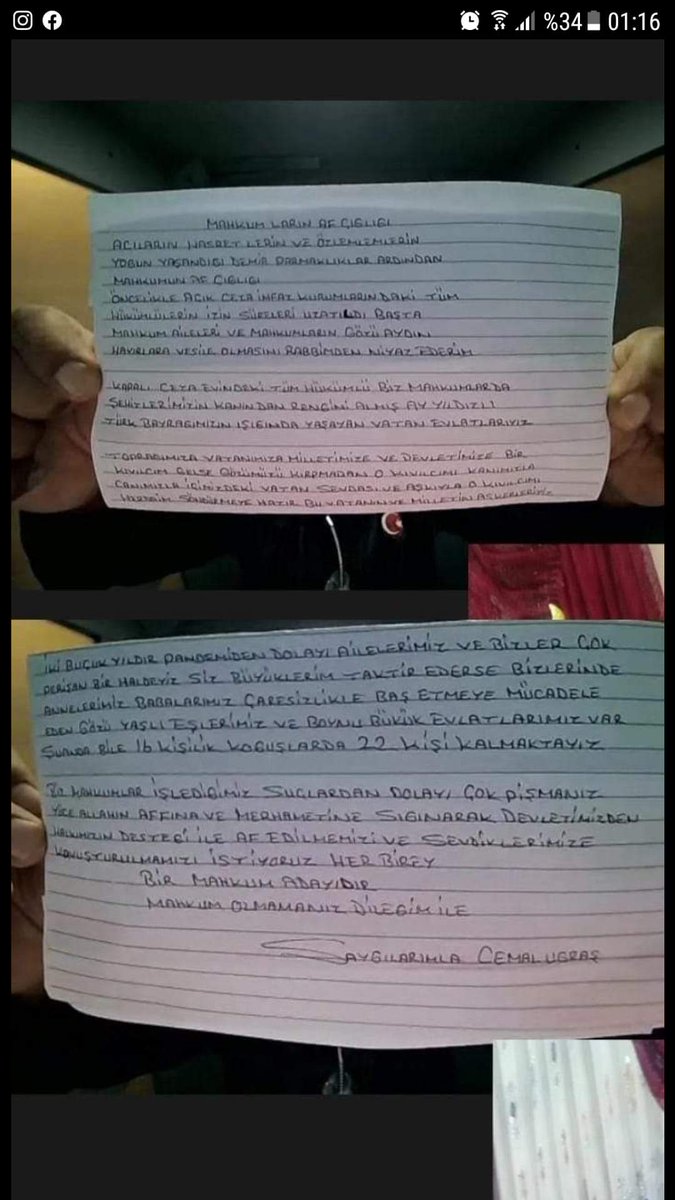 %34 01:16
MAHKUM LARIN AF ÇIGLIGI
ACILARIN HASRET LERİN VE ÖZLEMLEMLERİN
YOĞUN YAŞANDIGI DEMİR PARMAKLIKLAR ARDINDAN
MAHKUMUN AF ÇIGLIGI
ÖNCELİKLE ACIK CEZA İNFAZ KURUMLARINDAKİ TÜM
HÜKÜMLÜLERİN İZİN SÜRELERİ UZATILDI BAŞTA
MAHKUM AİLELERİ VE MAHKUMLARIN GÖZÜ AYDIN
HAYIRLARA VESİLE OLMASINI RABBİMDEN NİYAZ EDERİM
KAPALI CEZA EVİNDEKİ TÜM HÜKÜMLÜ BİZ MAHKUMLARDA
ŞEHİTLERİMİZİN KANINDAN RENGİNİ ALMIŞ AY YILDIZLI
TÜRK BAYRAGIMIZIN IŞIGINDA YAŞAYAN VATAN EVLATLARIYIZ
TOPRAGIMIZA VATANIMIZA MİLLETİMİZE VE DEVLETİMİZE BİR
KIVILCIM GELSE GÖZÜMÜZÜ KIRPMADAN O KIVILCIMI KANIMIZLA
CANIMIZLA İÇİMİZDEKİ VATAN SEVDASI VE AŞKIYLA O KIVILCIMI
SÖNDÜRMEYE HAZIR BU VATANIN VE MİLLETİN ASKERLERİYİZ
İKİ BUÇUK YILDIR PANDEMİDEN DOLAYI AİLELERİMİZ VE BİZLER ÇOK
PERİŞAN BİR HALDEYİZ SİZ BÜYÜKLERİM TAKTİR EDERSE BİZLERİNDE
ANNELERİMİZ BABALARIMIZ ÇARESİZLİKLE BAŞ ETMEYE MÜCADELE
EDEN GÖZÜ YAŞLI EŞLERİMİZ VE BOYNU BÜKÜK EVLATLARIMIZ VAR
ŞUANDA BİLE 16 KİŞİLİK KOGUŞLARDA 22 KİŞİ KALMAKTAYIZ
BİZ MAHKUMLAR İŞLEDİGİMİZ SUÇLARDAN DOLAYI ÇOK PİŞMANIZ
YÜCE ALLAHIN AFFINA VE MERHAMETİNE SIGINARAK DEVLETİMİZDEN
HALKIMIZIN DESTEGİ İLE AF EDİLMEMİZİ VE SEVDİKLERİMİZE
KAVUŞTURULMAMIZI İSTİYORUZ HER BİREY
BİR MAHKUM ADAYIDIR
MAHKUM OLMAMANIZ DİLEGİM İLE
SAYGILARIMLA CEMAL UGRAŞ